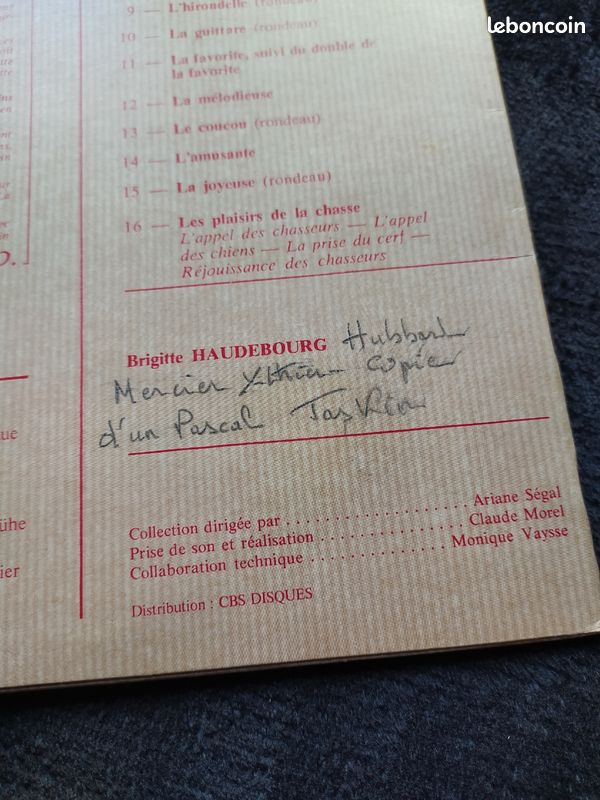 leboncoin
9 — L'hirondelle (rondeau)
10 — La guittare (rondeau)
11 — La favorite, suivi du double de
la favorite
12 — La mélodieuse
13 — Le coucou (rondeau)
14 — L'amusante
15 — La joyeuse (rondeau)
16 — Les plaisirs de la chasse
L'appel des chasseurs — L'appel
des chiens — La prise du cerf —
Réjouissance des chasseurs
Brigitte HAUDEBOURG Hubbard
Mercier copier
d'un Pascal Taskin
Collection dirigée par . . . . . . . . . . . . . . . . . . . Ariane Ségal
Prise de son et réalisation . . . . . . . . . . . . . . . Claude Morel
Collaboration technique . . . . . . . . . . . . . . Monique Vaysse
Distribution : CBS DISQUES